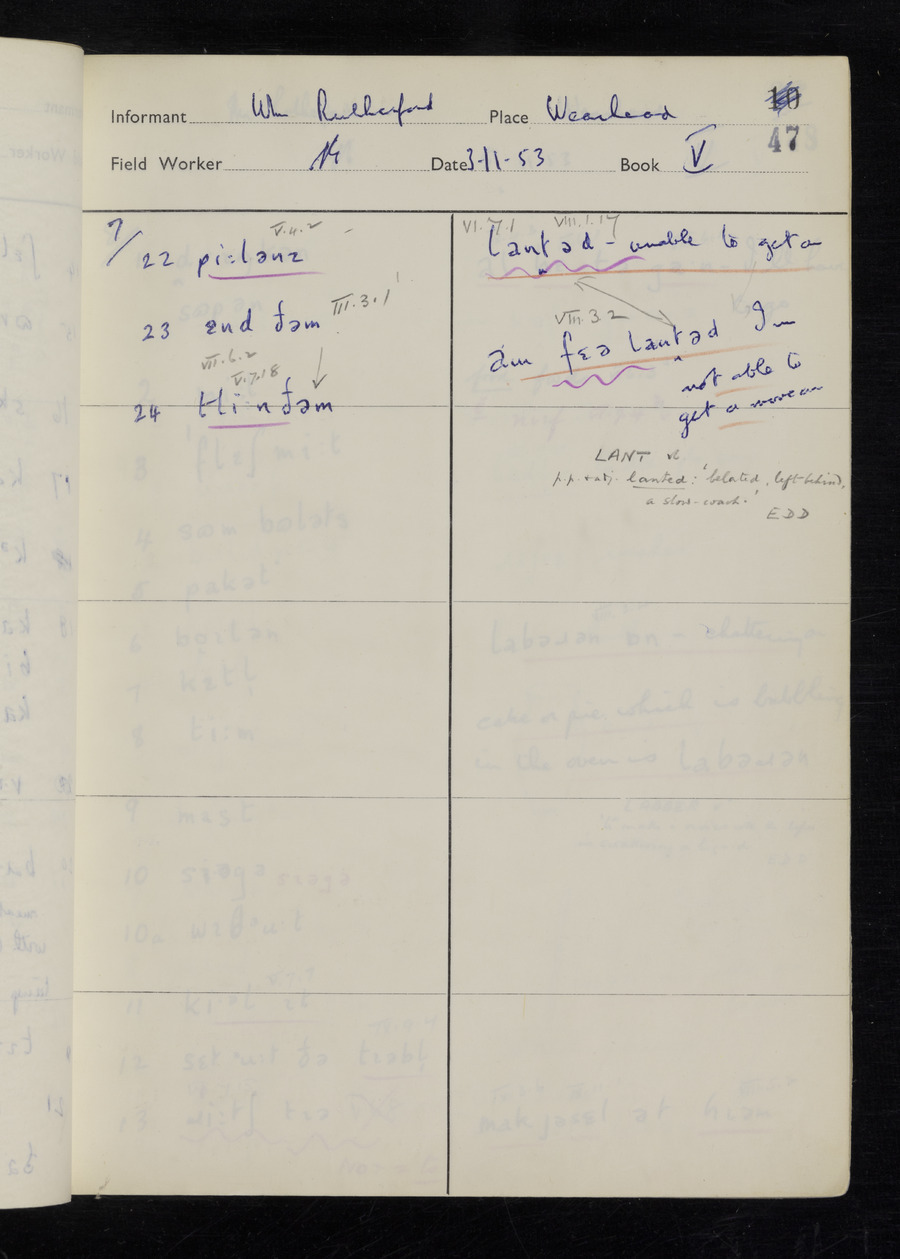 Informant Wm Rutherford Place Wearhead 10
47
Field Worker Date 3-11-53 Book V
7/
22 pi:lənz V.4.2
23 ɛnd ðəm III.3.1
VII.6.2
V.7.18
24 ðəm
VI.7.1 VIII.1.17
lantəd - unable to get on
VIII.3.2
am fɛə lantəd I'm
not able to
get a move on
LANT vb.
p.p. & adj. lanted: 'belated, left behind,
a slow-coach.'
EDD